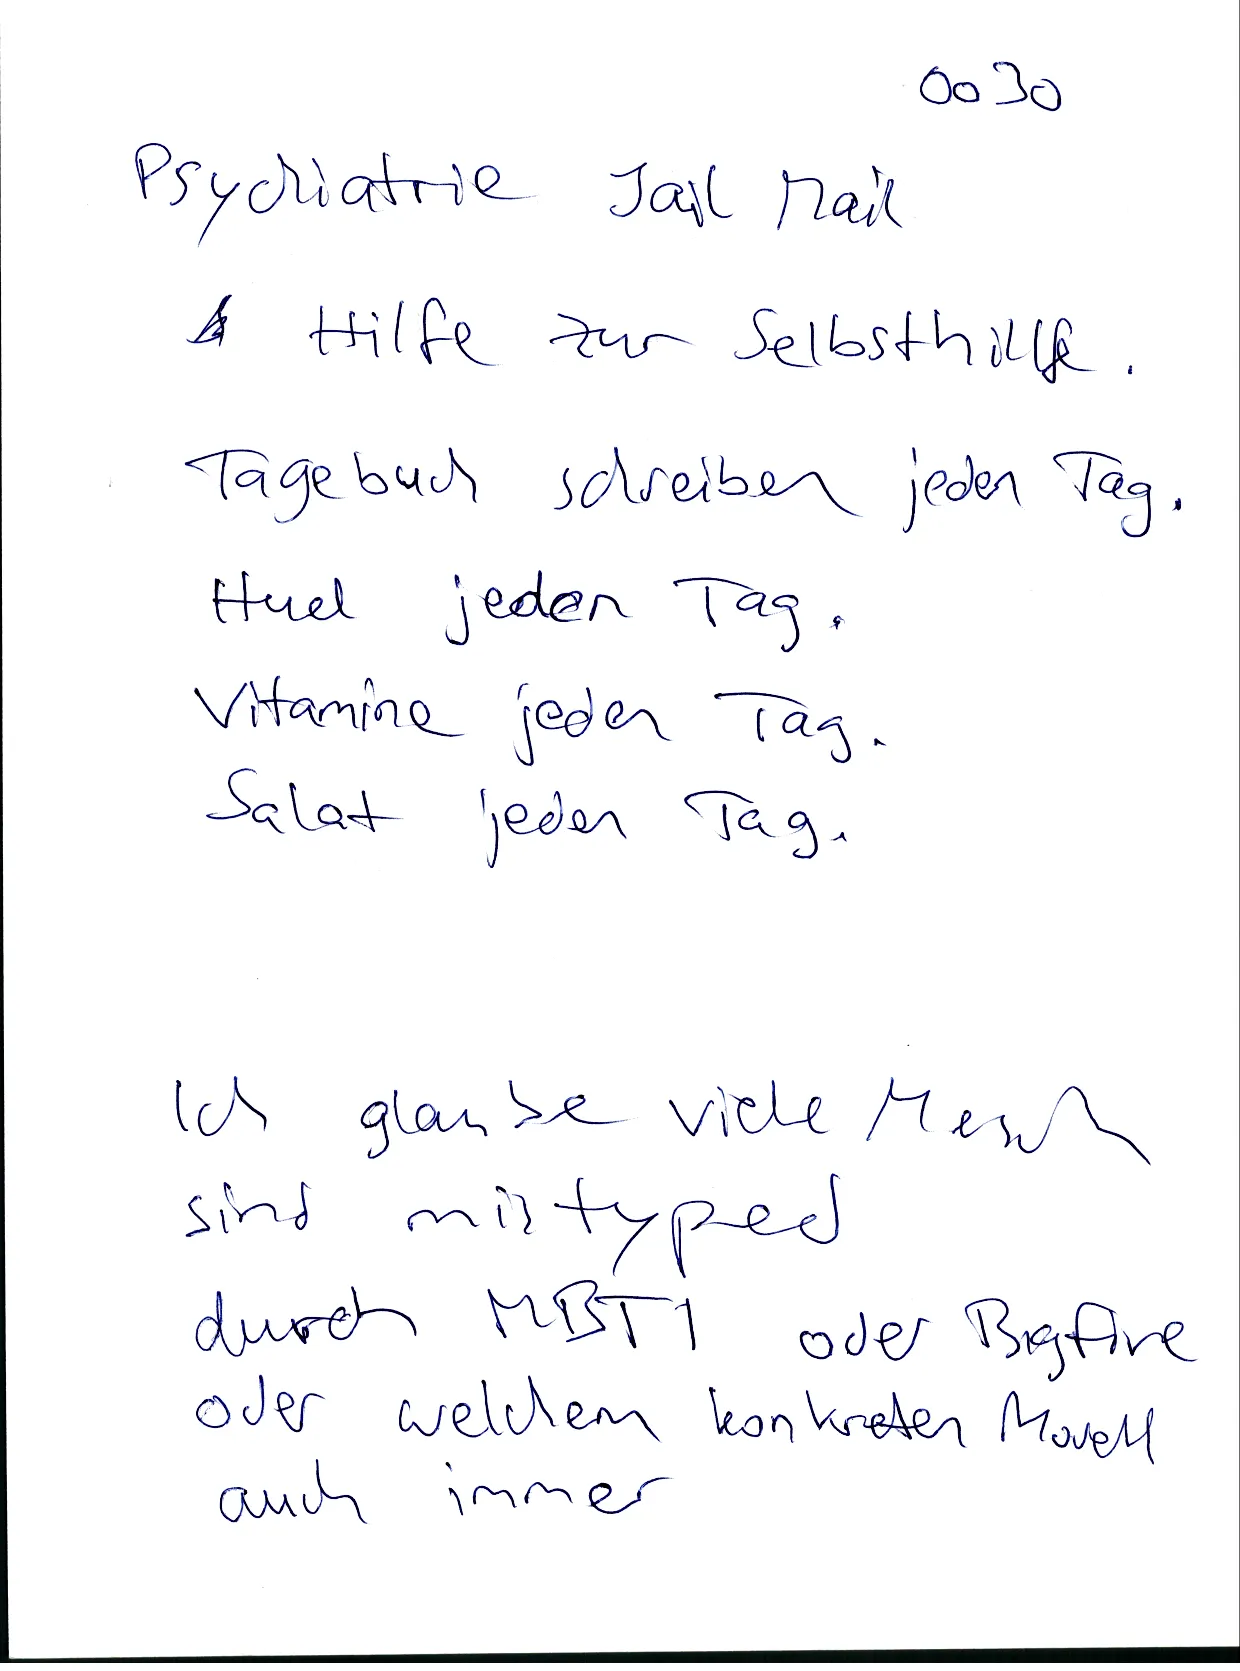 0030
Psychiatrie Jail Mail
Hilfe zur Selbsthilfe.
Tagebuch schreiben jeden Tag.
Huel jeden Tag.
Vitamine jeden Tag.
Salat jeden Tag.
Ich glaube viele Mensch
sind mistyped
durch MBTI oder Bigfive
oder welchem konkreten Modell
auch immer